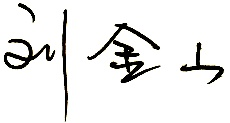 刘金山